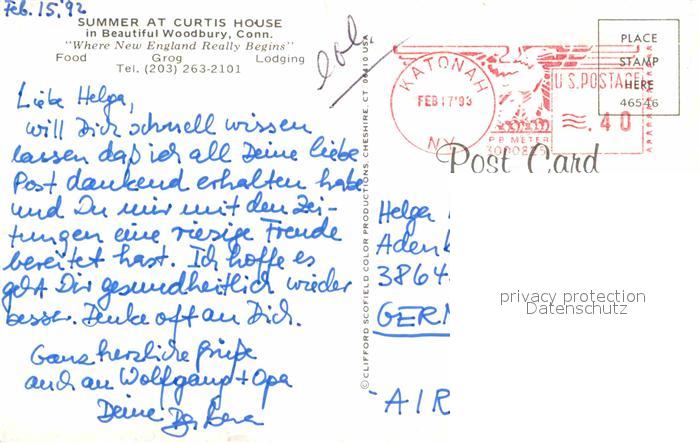 Feb. 15, 92
SUMMER AT CURTIS HOUSE
in Beautiful Woodbury, Conn.
"Where New England Really Begins"
Food Grog Lodging
Tel. (203) 263-2101
Liebe Helga,
will Dich schnell wissen
lassen daß ich all Deine liebe
Post dankend erhalten habe
und Du mir mit den Zei-
tungen eine riesige Freude
bereitet hast. Ich hoffe es
geht Dir gesundheitlich wieder
besser. Denke oft an Dich.
Ganz herzliche Grüße
auch an Wolfgang + Opa
Deine Barbara
© CLIFFORD SCOFIELD COLOR PRODUCTIONS, CHESHIRE, CT 06410 USA
KATONAH
FEB 17'93
NY
U.S. POSTAGE
.40
P.B. METER
PLACE
STAMP
HERE
46546
Post Card
Helga
Adenk
3864
GERM
AIR
privacy protection
Datenschutz